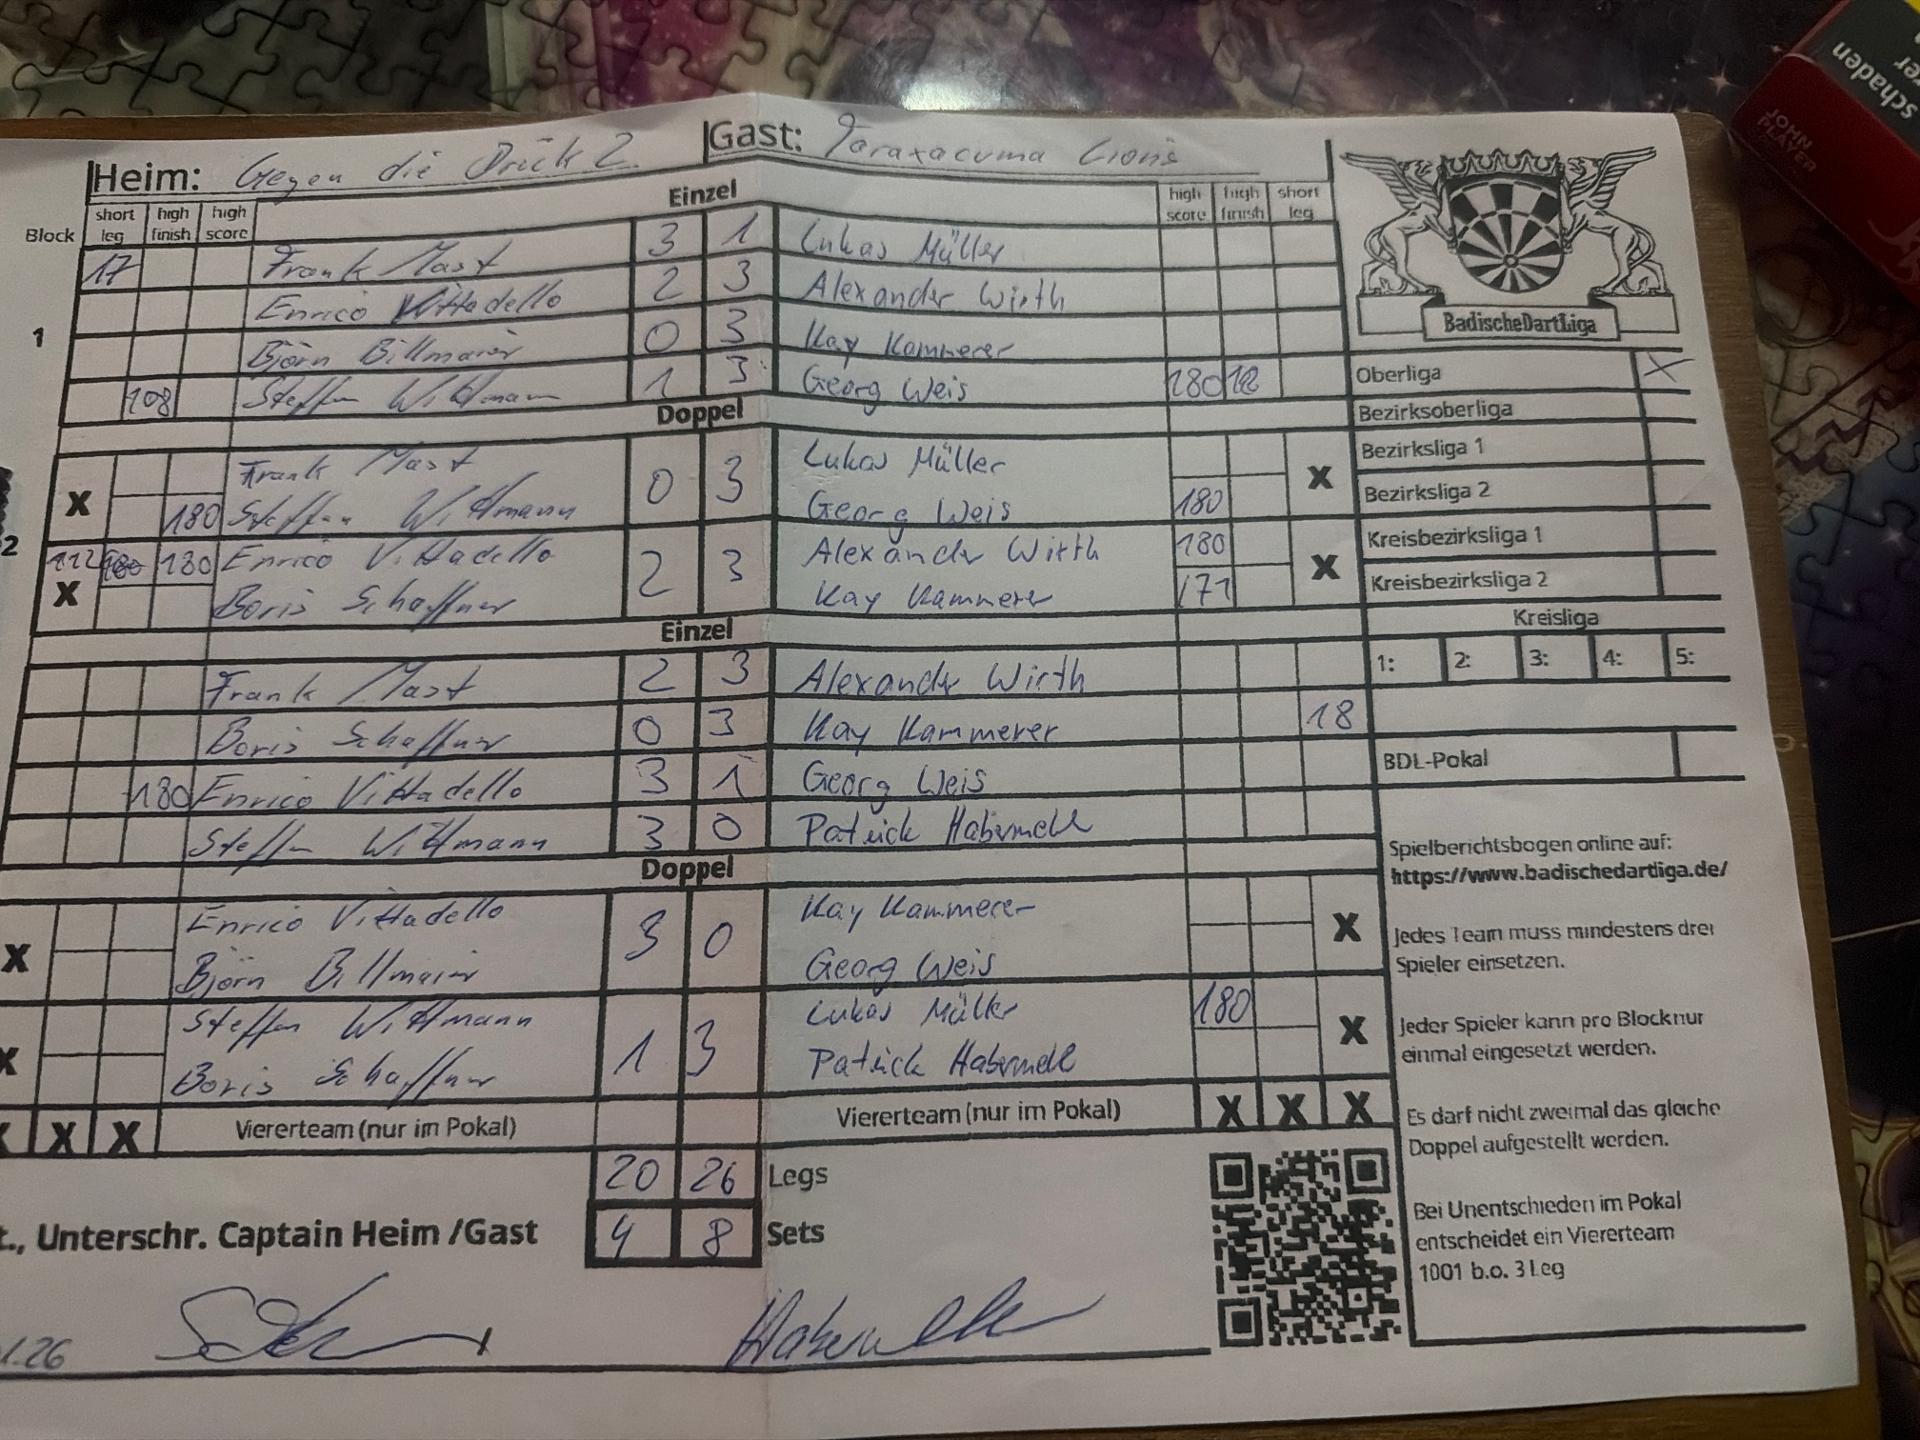 Heim: Gegen die Drück 2 Gast: Taraxacuma Lions
Einzel
Block short leg high finish high score high score high finish short leg
17 Frank Mast 3 1 Lukas Müller
1
Enrico Vittadello 2 3 Alexander Wirth
Björn Billmaier 0 3 Kay Kammerer
108 Steffen Wittmann 1 3 Georg Weis 180
Doppel
Frank Mast 0 3 Lukas Müller
X 180 Steffen Wittmann Georg Weis 180 X
2
112 180 Enrico Vittadello 2 3 Alexander Wirth 180
X Boris Schaffner Kay Kammerer 171 X
Einzel
Frank Mast 2 3 Alexander Wirth
Boris Schaffner 0 3 Kay Kammerer 18
180 Enrico Vittadello 3 1 Georg Weis
Steffen Wittmann 3 0 Patrick Habermehl
Doppel
Enrico Vittadello 3 0 Kay Kammerer
X Björn Billmaier Georg Weis X
Steffen Wittmann 1 3 Lukas Müller 180
X Boris Schaffner Patrick Habermehl X
X X X Viererteam (nur im Pokal) Viererteam (nur im Pokal) X X X
20 26 Legs
4 8 Sets
t., Unterschr. Captain Heim /Gast
.26
BadischeDartLiga
Oberliga X
Bezirksoberliga
Bezirksliga 1
Bezirksliga 2
Kreisbezirksliga 1
Kreisbezirksliga 2
Kreisliga
1: 2: 3: 4: 5:
BDL-Pokal
Spielberichtsbogen online auf:
https://www.badischedartliga.de/
Jedes Team muss mindestens drei
Spieler einsetzen.
Jeder Spieler kann pro Block nur
einmal eingesetzt werden.
Es darf nicht zweimal das gleiche
Doppel aufgestellt werden.
Bei Unentschieden im Pokal
entscheidet ein Viererteam
1001 b.o. 3 Leg
schaden
JOHN
PLAYER